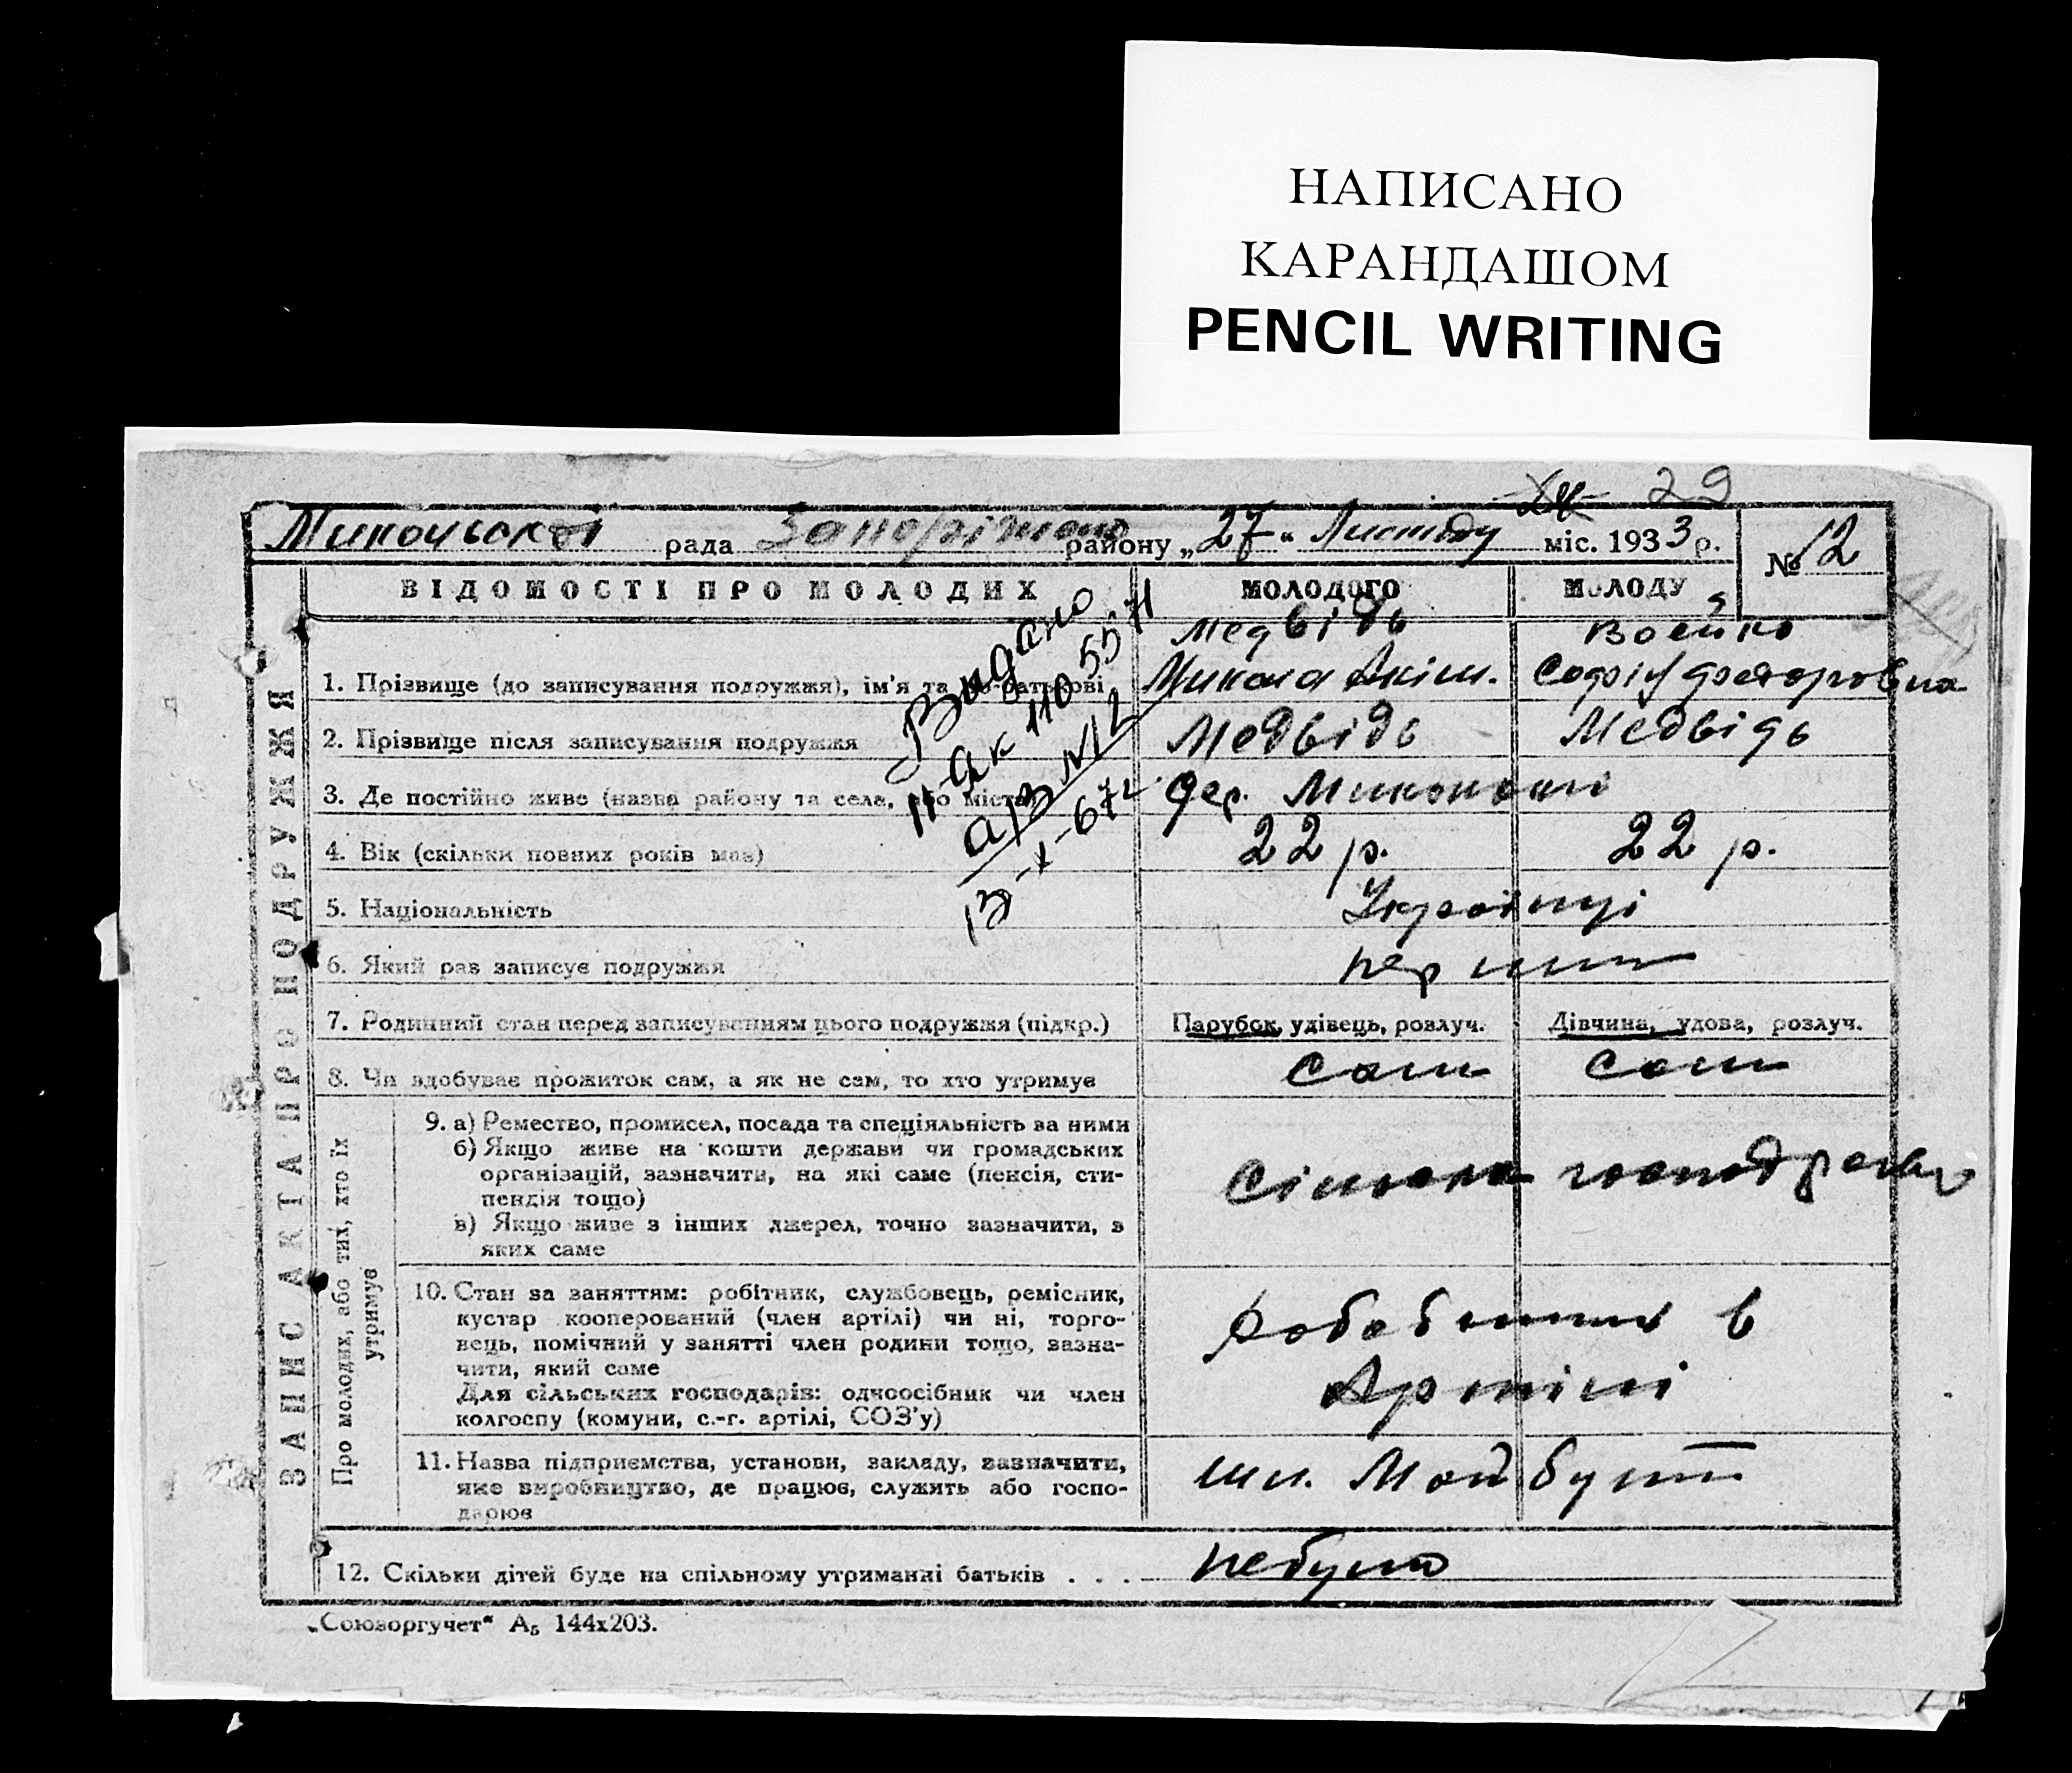 НАПИСАНО
КАРАНДАШОМ
PENCIL WRITING
29
рада району „27“ міс. 1933 р. № 12
ВІДОМОСТІ ПРО МОЛОДИХ МОЛОДОГО МОЛОДУ
Медвідь
1. Прізвище (до записування подружжя), ім'я та по-батькові Микола Акім. Софія
2. Прізвище після записування подружжя Медвідь Медвідь
3. Де постійно живе (назва району та села, або міста) дер.
4. Вік (скільки повних років має) 22 р. 22 р.
5. Національність Українці
6. Який раз записує подружжя
7. Родинний стан перед записуванням цього подружжя (підкр.) Парубок, удівець, розлуч. Дівчина, удова, розлуч.
8. Чи здобуває прожиток сам, а як не сам, то хто утримує Сам Сам
9. а) Ремество, промисел, посада та спеціяльність за ними
б) Якщо живе на кошти держави чи громадських
організацій, зазначити, на які саме (пенсія, сти-
пендія тощо)
в) Якщо живе з інших джерел, точно зазначити, з
яких саме
10. Стан за заняттям: робітник, службовець, ремісник,
кустар кооперований (член артілі) чи ні, торго-
вець, помічний у занятті член родини тощо, зазна-
чити, який саме
Для сільських господарів: одноосібник чи член
колгоспу (комуни, с.-г. артілі, СОЗ'у)
в
Артілі
11. Назва підприємства, установи, закладу, зазначити,
яке виробництво, де працює, служить або госпо-
дарює
12. Скільки дітей буде на спільному утриманні батьків . . .
ЗАПИС АКТА ПРО ПОДРУЖЖЯ
Про молодих, або тих, хто їх
утримує
Видано
а/з №12
13-X-67г
„Союзоргучет“ А₅ 144х203.